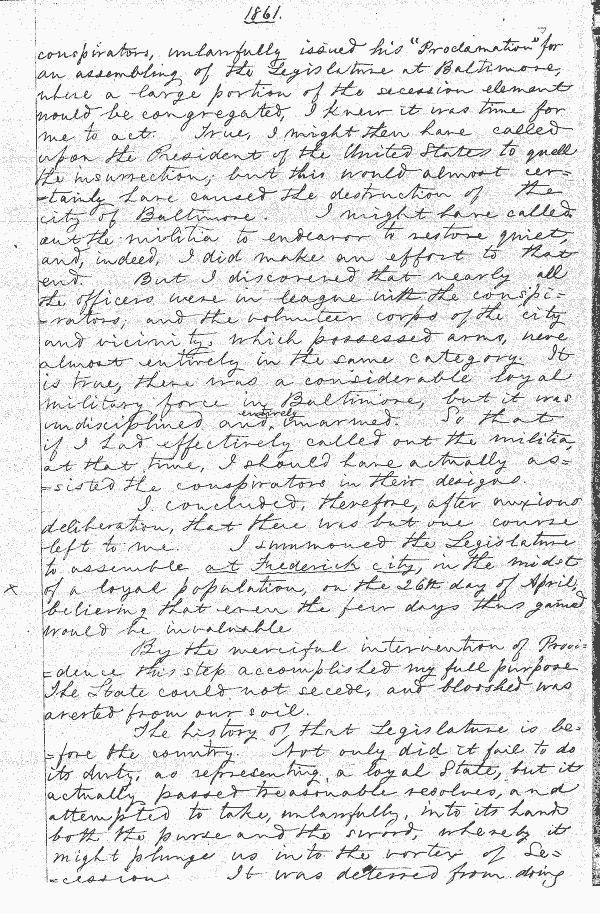 1861.
conspirators, unlawfully issued his "Proclamation" for
an assembling of the Legislature at Baltimore,
where a large portion of the secession element
would be congregated, I knew it was time for
me to act. True, I might then have called
upon the President of the United States to quell
the insurrection; but this would almost cer=
=tainly have caused the destruction of the
city of Baltimore. I might have called
out the militia to endeavor to restore quiet,
and, indeed, I did make an effort to that
end. But I discovered that nearly all
the officers were in league with the conspi=
=rators; and the volunteer corps of the city
and vicinity, which possessed arms, were
almost entirely in the same category. It
is true, there was a considerable loyal
military force in Baltimore, but it was
undisciplined and, entirely unarmed. So that
if I had effectively called out the militia,
at that time, I should have actually as=
=sisted the conspirators in their designs.
I concluded, therefore, after anxious
deliberation, that there was but one course
left to me. I summoned the Legislature
to assemble at Frederick city, in the midst
x of a loyal population, on the 26th day of April,
believing that even the few days thus gained
would be invaluable
By the merciful intervention of Provi=
=dence this step accomplished my full purpose
The State could not secede, and bloodshed was
averted from our soil.
The history of that Legislature is be=
=fore the country. Not only did it fail to do
its duty, as representing a loyal State, but it
actually passed treasonable resolves, and
attempted to take, unlawfully, into its hands
both the purse and the sword, whereby it
might plunge us into the vortex of Se=
=cession. It was deterred from doing